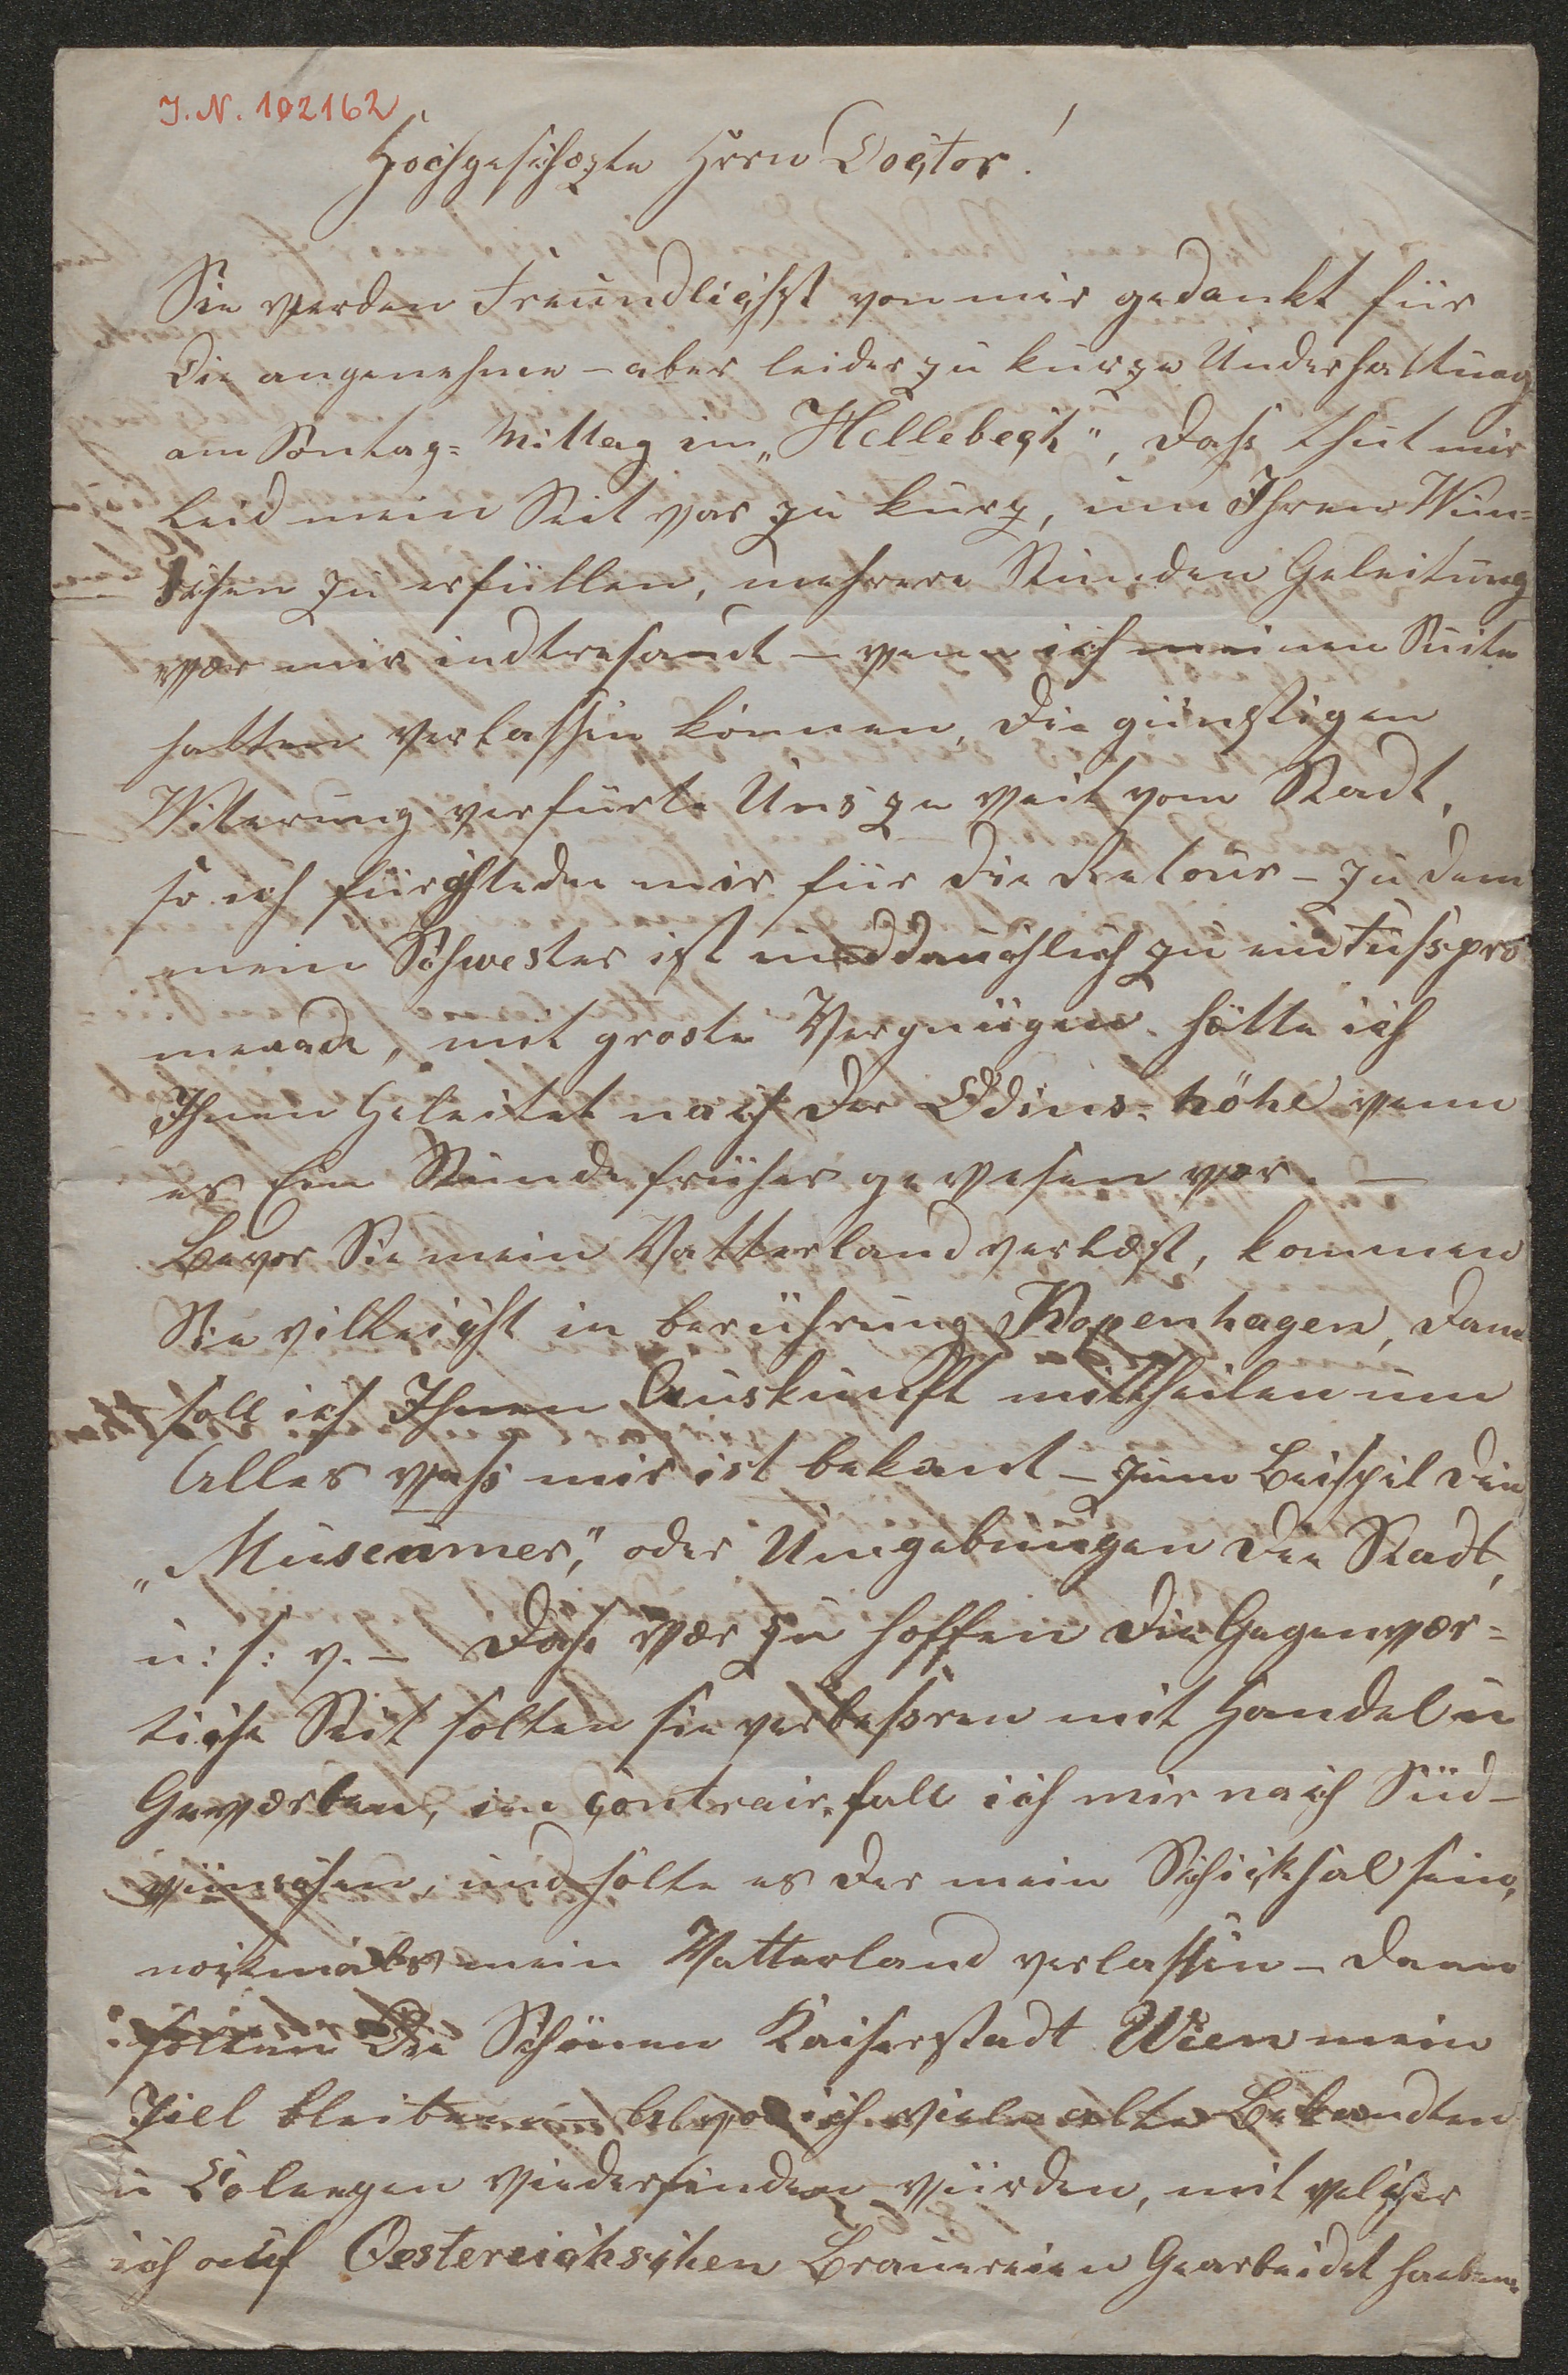 J. N. 102162
Hochgeschæzte Herrn Doctor!
Sie werden Freundlichst von mir gedankt für
Die angenehme – aber leider zu kurze Underhaltung
am Sontag-Mittag im „Hellebech", Dass thut mir
Leid mein Seit var zu kurz, um Ihren Wün-
schen zu erfüllen, mehrere Stunden Geleitung
vær mir indtresandt – venn ich meinen Suite
hatten verlassen können, Die günstigen
Witerung verfürte Uns zu veit vom Stadt,
so ich fürchteden mir für Die Retour – zu dem
mein Schwester ist zu ein Fusspro
menade, mit groste Vergnügen hätte ich
Ihnen Geleitet nach Der Odins-höhe venn
es Ein Stunde früher gevesen vær. —
Bevor Sie mein Vatterland verlæst, kommen
Sie villeicht in berührung Kopenhagen, Dann
soll ich Ihnen Auskunft mittheilen um
Alles vass mir ist bekandt – zum Beispil Die
„Museumer," oder Umgebungen Die Stadt,
u: s: v. – Dass vær zu hoffen Die Gegenvær-
tiche Seit solten sie verbessren mit Handel u
Geværben, im contrair-fall ich mir nach Süd-
vünschen, und solte es Der mein Schicksal sein,
nochmals mein Vatterland verlassen – Dann
solten Die Schönen Kaiserstadt Wien mein
Ziel bleiben – ich viele alte Bekandten
u Colleegen viederfinden vürden, mit velcher
ich auf Oestereichschen Brauereien Gearbeidet haben